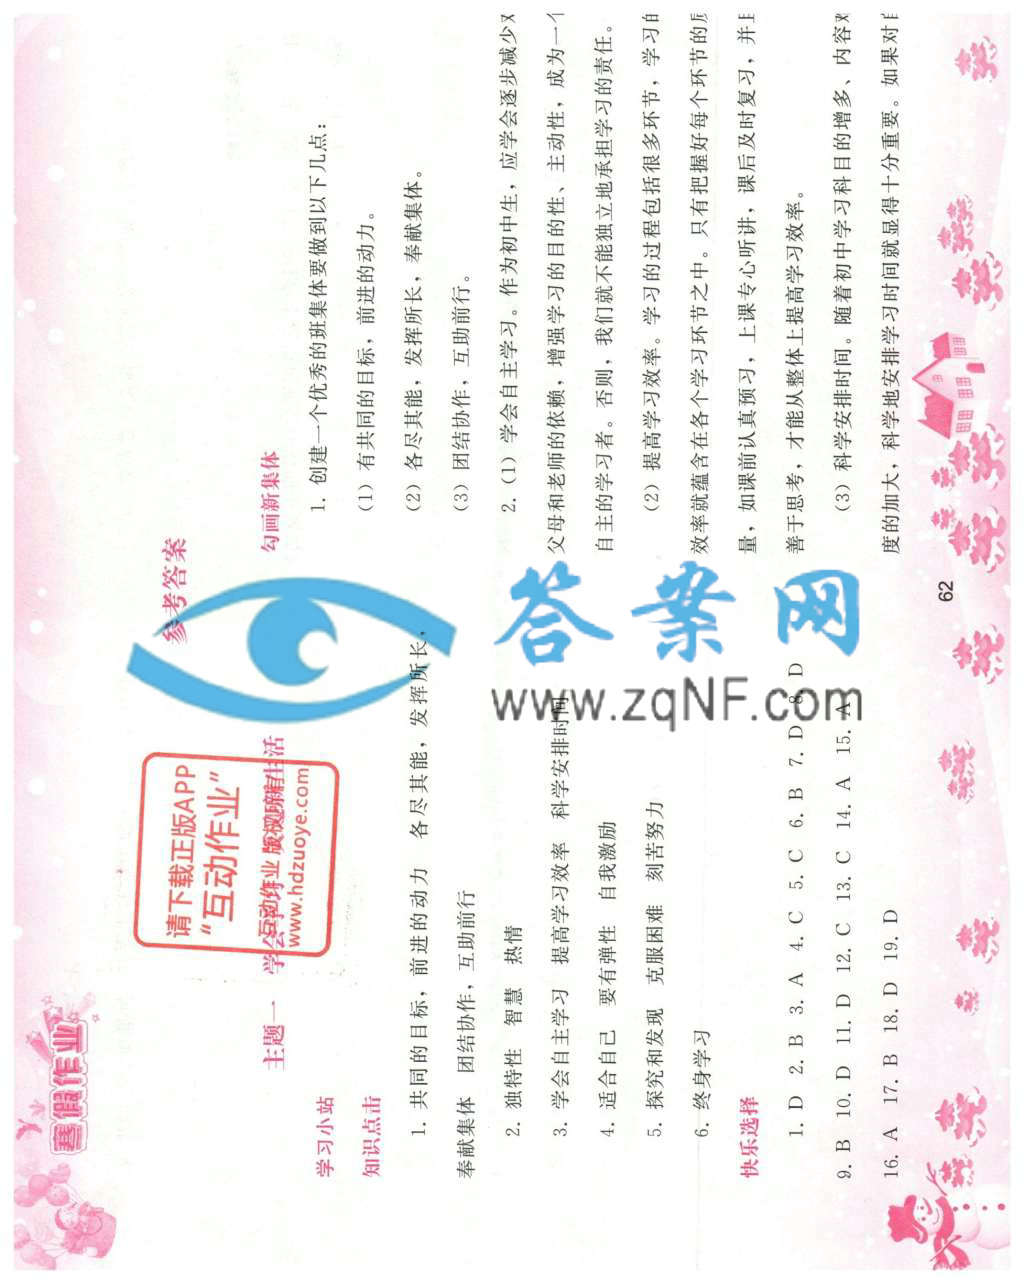 寒假作业
参考答案
主题一 学会学习
学习小站
知识点击
1. 共同的目标，前进的动力 各尽其能，发挥所长，
奉献集体 团结协作，互助前行
2. 独特性 智慧 热情
3. 学会自主学习 提高学习效率 科学安排时间
4. 适合自己 要有弹性 自我激励
5. 探究和发现 克服困难 刻苦努力
6. 终身学习
快乐选择
1. D 2. B 3. A 4. C 5. C 6. B 7. D 8. D
9. B 10. D 11. D 12. C 13. C 14. A 15. A
16. A 17. B 18. D 19. D
勾画新集体
1. 创建一个优秀的班集体要做到以下几点：
（1）有共同的目标，前进的动力。
（2）各尽其能，发挥所长，奉献集体。
（3）团结协作，互助前行。
2.（1）学会自主学习。作为初中生，应学会逐步减少对
父母和老师的依赖，增强学习的目的性、主动性，成为一个
自主的学习者。否则，我们就不能独立地承担学习的责任。
（2）提高学习效率。学习的过程包括很多环节，学习的
效率就蕴含在各个学习环节之中。只有把握好每个环节的质
量，如课前认真预习，上课专心听讲，课后及时复习，并且
善于思考，才能从整体上提高学习效率。
（3）科学安排时间。随着初中学习科目的增多、内容难
度的加大，科学地安排学习时间就显得十分重要。如果对自
62
请下载正版APP
“互动作业”
互动作业 版权所有
www.hdzuoye.com
答案网
www.zqNF.com